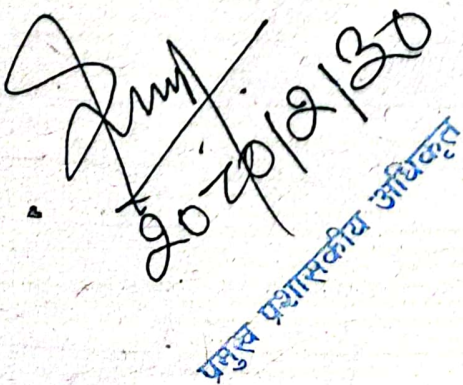 २०८०/२/३०
प्रमुख प्रशासकीय अधिकृत